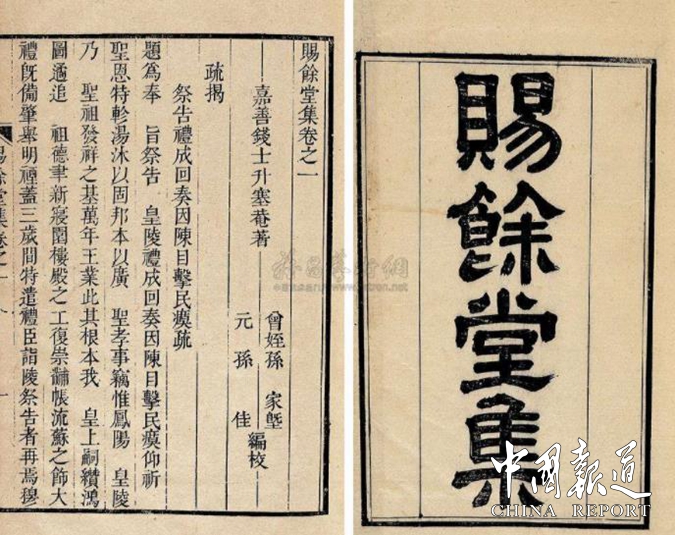 賜餘堂集卷之一
嘉善錢士升塞菴著
曾姪孫 家塈
元孫 佳
編校
疏揭
祭告禮成回奏因陳目擊民瘼疏
題為奉 旨祭告 皇陵禮成回奏因陳目擊民瘼仰祈
聖恩特軫湯沐以固邦本以廣 聖孝事竊惟鳳陽 皇陵
乃 聖祖發祥之基萬年王業此其根本我 皇上嗣纘鴻
圖遹追 祖德聿新寢園樓殿之工復崇黼帳流蘇之飾大
禮旣備肇舉明禋蓋三歲間特遣禮臣詣陵祭告者再焉穆
賜餘堂集卷之一
賜餘堂集
中國報道
CHINA REPORT